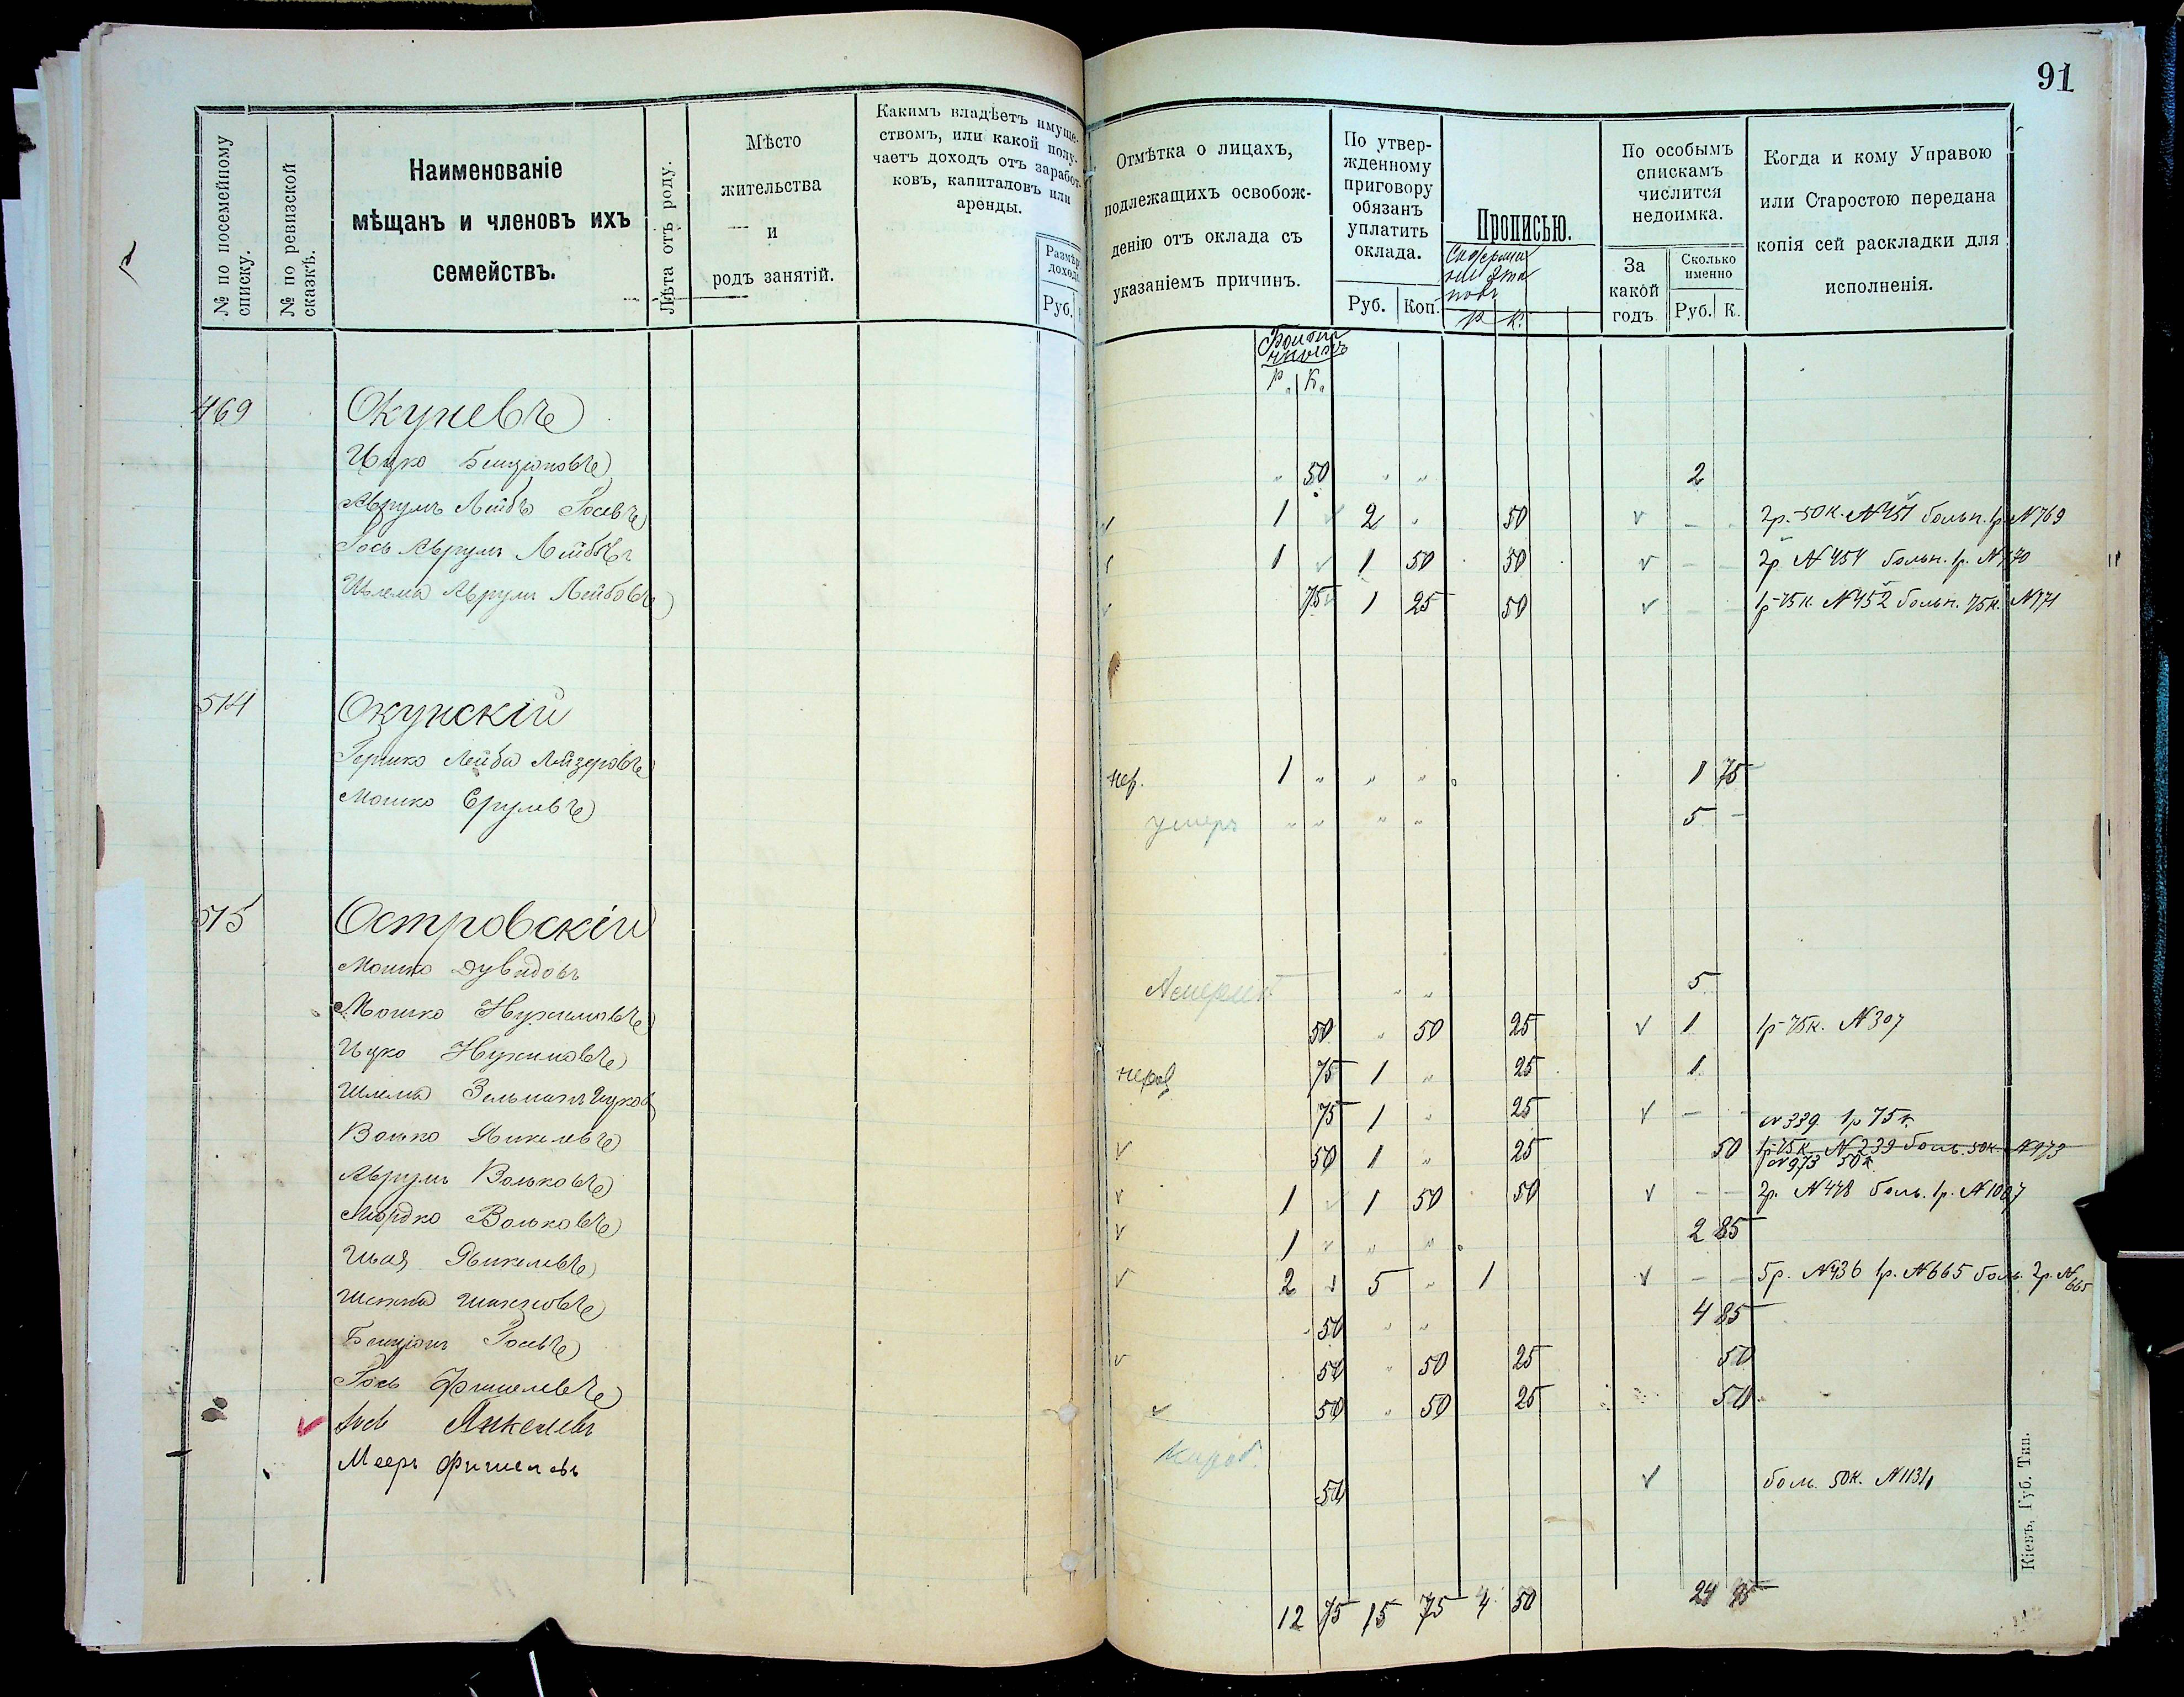 91
№ по посемейному списку.
№ по ревизской сказкѣ.
Наименованіе
мѣщанъ и членовъ ихъ
семействъ.
Лѣта отъ роду.
Мѣсто
жительства
и
родъ занятій.
Какимъ владѣетъ имуще-
ствомъ, или какой полу-
чаетъ доходъ отъ заработ-
ковъ, капиталовъ или
аренды.
Размѣр
доход
Руб.
Отмѣтка о лицахъ,
подлежащихъ освобож-
денію отъ оклада съ
указаніемъ причинъ.
По утвер-
жденному
приговору
обязанъ
уплатить
оклада.
Руб. Коп.
Прописью.
Р К.
По особымъ
спискамъ
числится
недоимка.
За
какой
годъ
Сколько
именно
Руб. К.
Когда и кому Управою
или Старостою передана
копія сей раскладки для
исполненія.
Р. К.
469 Окуневъ
Ицко Бенціоновъ " 50 " " 2
Аврумъ Лейбъ Іосевъ 1 2 " 50 v 2р.-50к. №451 больн. 1р. №769
Іось Аврумъ Лейбовъ 1 1 50 50 v 2р №454 больн. 1р. №770
Шлема Аврумъ Лейбовъ 75 1 25 50 v 1р-75к. №452 больн. 75к. №771
514 Окунскій
Гершко Лейба Лейзеровъ 1 " " " 1 75
Мошко Срулевъ умеръ " " " " 5 -
515 Островскій
Мошко Дувидовъ " " 5
Мошко Нухимовъ 50 " 50 25 v 1 1р-75к. №307
Ицко Нухимовъ 75 1 " 25 1
Шлема Зельманъ Ицков 75 1 " 25 v - - №339 1р 75к.
Волько Янкелевъ v 50 1 " 25 50 1р-75к. №239 боль. 50к. №973
№973 50к
Аврумъ Вольковъ v 1 1 50 50 v - - 2р. №478 боль. 1р. №1007
Мордко Вольковъ v 1 " " " 2 85
Шая Янкелевъ v 2 5 " 1 v - - 5р. №436 1р. №665 боль. 2р. №665
50 " " 4 85
Бенціонъ Іосевъ v 50 " 50 25 50
Іось Фишелевъ 50 " 50 25 50
v Янкелевъ
Мееръ Фишелевъ 50 v боль. 50к.
12 75 15 75 4 50 24 95
Кіевъ, Губ. Тип.